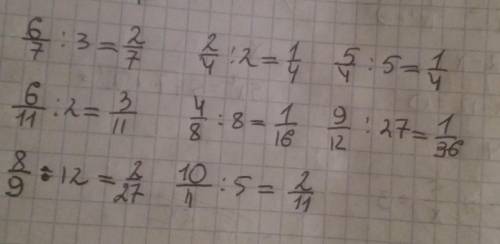 6/7 : 3 = 2/7   2/4 : 2 = 1/4   5/4 : 5 = 1/4
6/11 : 2 = 3/11   4/8 : 8 = 1/16   9/12 : 27 = 1/36
8/9 : 12 = 2/27   10/11 : 5 = 2/11